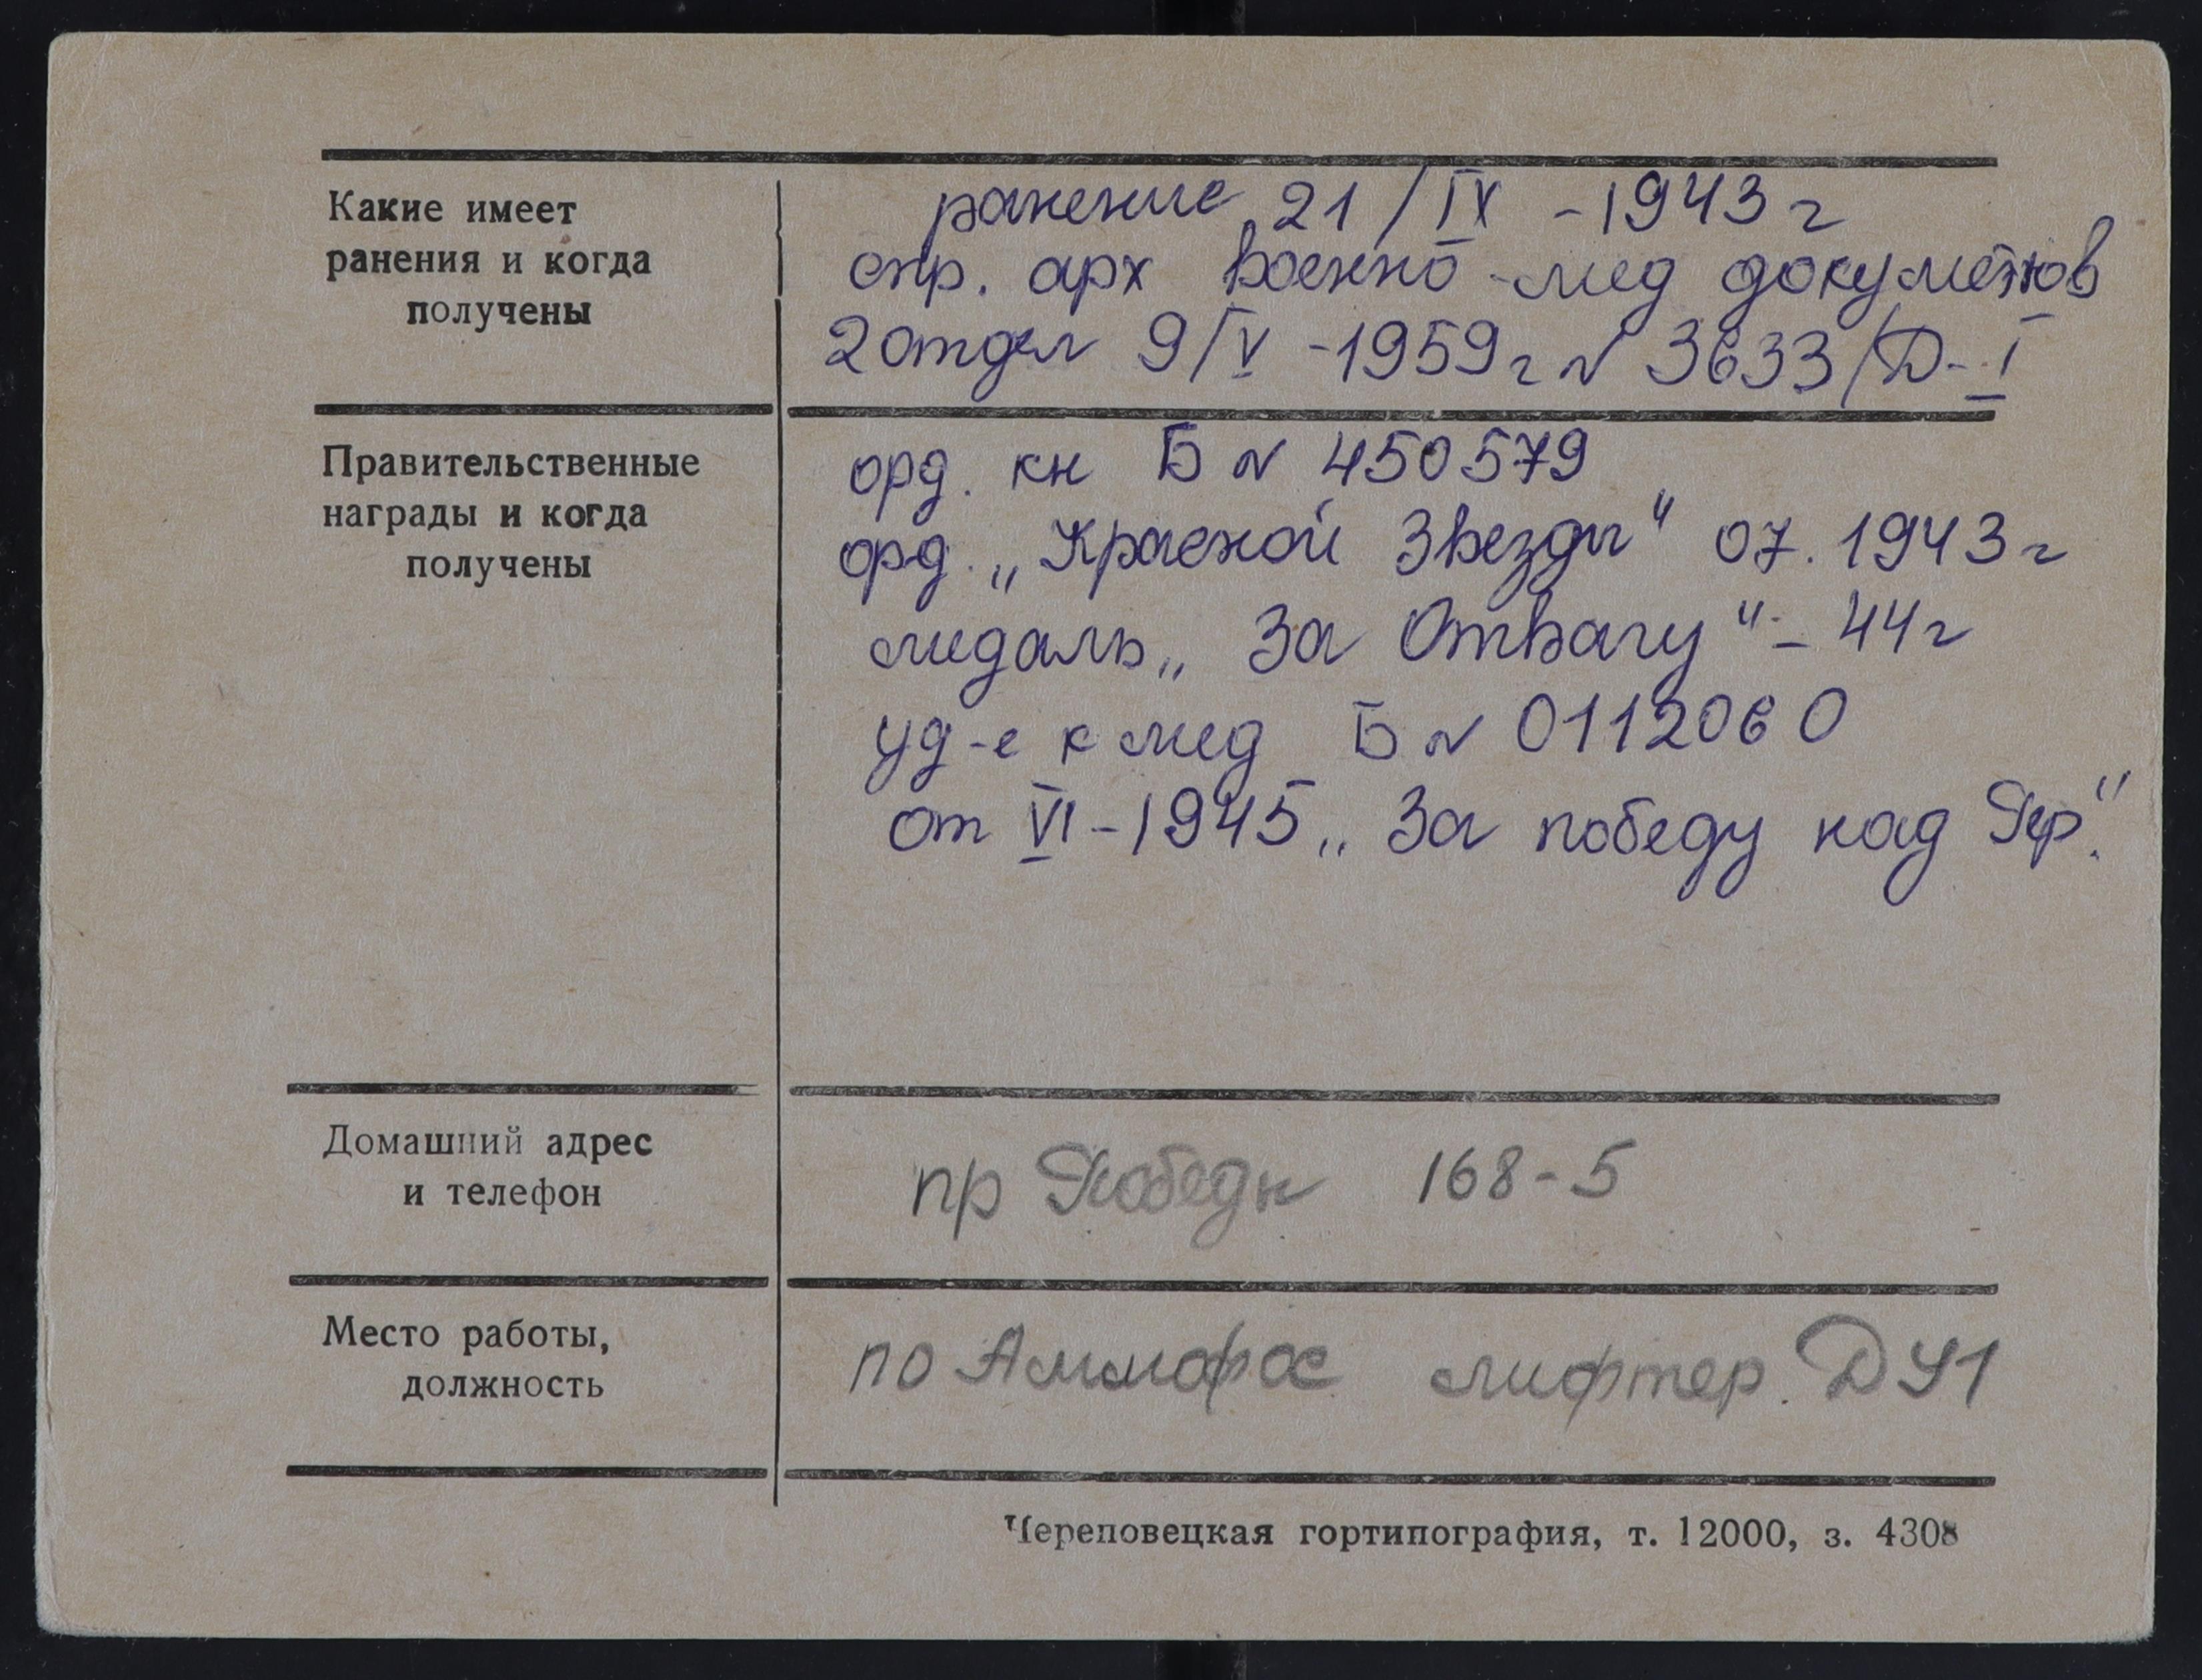 Какие имеет
ранения и когда
получены
ранение 21/IX - 1943 г
спр. арх военно-мед документов
2 отдел 9/V - 1959 г N 3633/Д-I
Правительственные
награды и когда
получены
орд. кн Б N 450579
орд. „Красной Звезды" 07. 1943 г
медаль „За Отвагу" - 44 г
уд-е к мед Б N 0112060
от VI - 1945 „За победу над Гер."
Домашний адрес
и телефон
пр Победы 168-5
Место работы,
должность
по Аммофос лифтер. ДУ1
Череповецкая гортипография, т. 12000, з. 4308